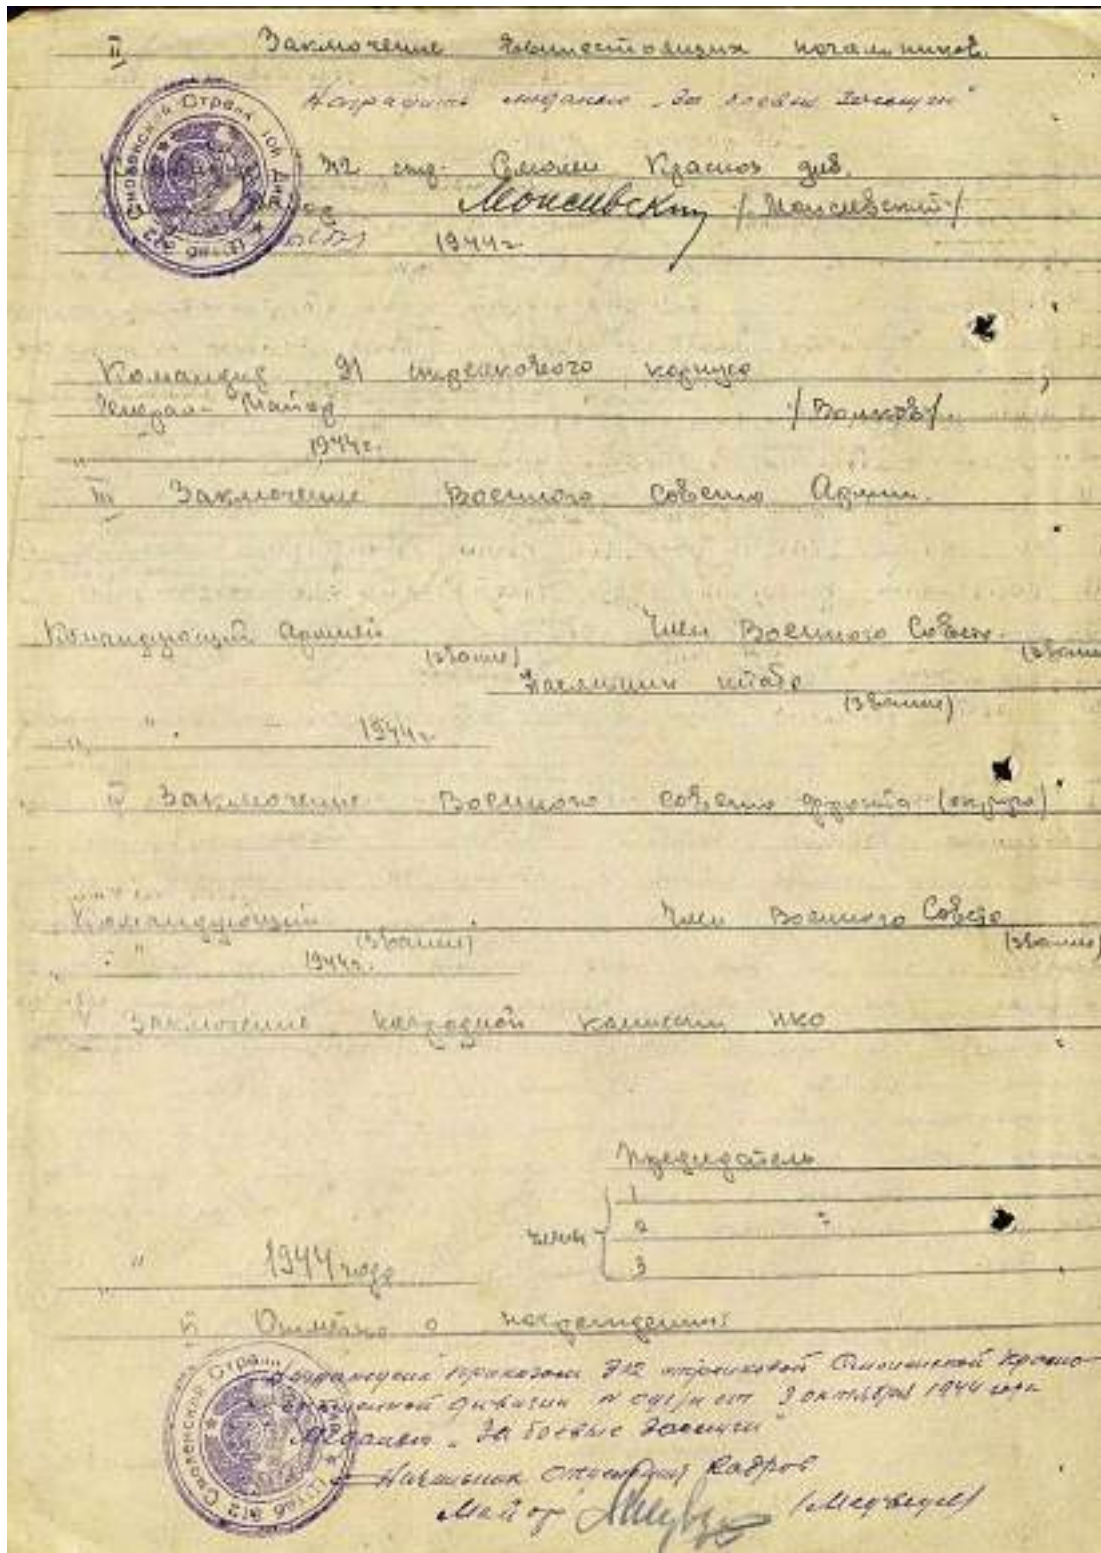 II Заключение вышестоящих начальников.
Наградить медалью „За боевые заслуги"
312 стр. Смолен Красноз див.
Моисевский /Моисевский/
1944 г
Командир 91 стрелкового корпуса
Генерал-Майор /Волков/.
" 1944 г.
III Заключение Военного Совета Армии.
Командующий Армией Член Военного Совета
(звание) (звание
Начальник штаба
(звание)
" " 1944 г
IV Заключение Военного совета фронта (округа)
Командующий Член Военного Совета
(звание) (звание)
" 1944 г.
V Заключение наградной комиссии НКО
Председатель
1
члены 2
3
" 1944 года
VI Отметка о награждении:
Награжден приказом 312 стрелковой Смоленской Красно-
знаменной дивизии N от 9 октября 1944 года
Медалью „За боевые Заслуги"
Начальник Отделения Кадров
Майор /Медведев/
Штаб 312 Смоленской Стрелковой